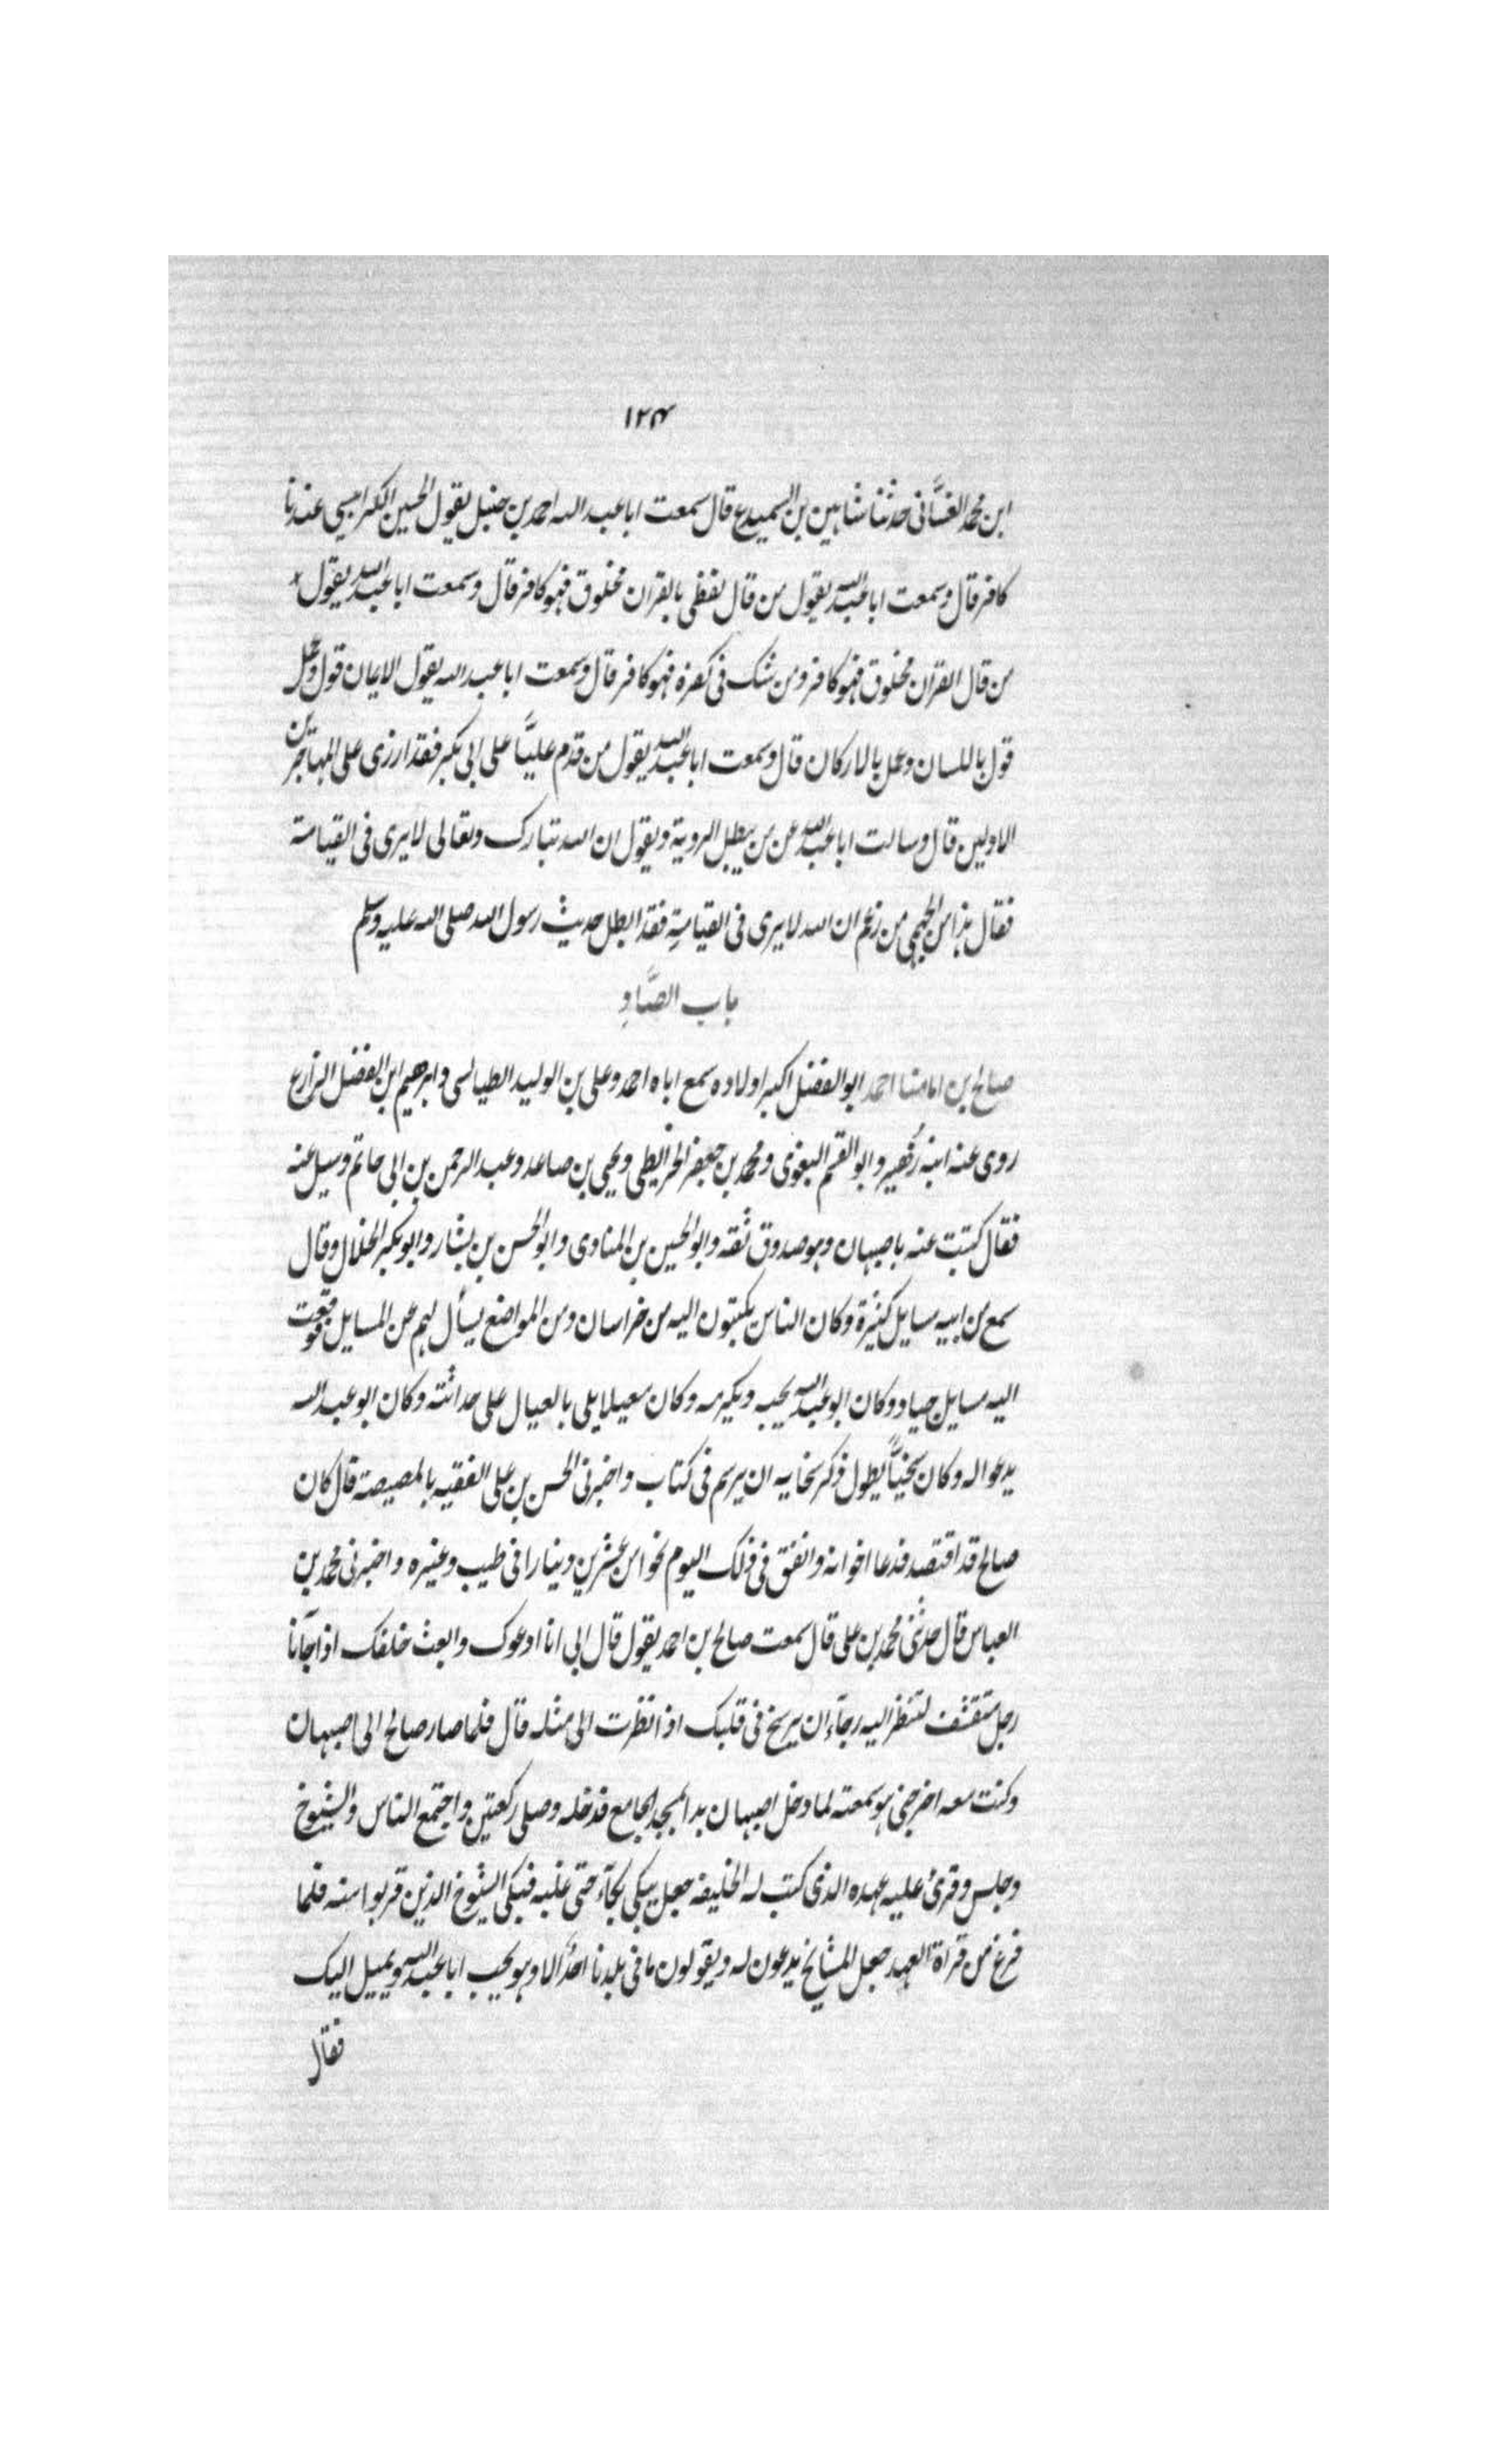 ١٢٤
ابن محمد الغسّانى حدثنا شاهين بن السميدع قال سمعت ابا عبد الله احمد بن حنبل يقول الحسين الكرابيسى عندنا
كافر قال وسمعت ابا عبد الله يقول من قال لفظى بالقران مخلوق فهو كافر قال وسمعت ابا عبد الله يقول
من قال القران مخلوق فهو كافر ومن شك فى كفره فهو كافر قال وسمعت ابا عبد الله يقول الايمان قول وعمل
قول باللسان وعمل بالاركان قال وسمعت ابا عبد الله يقول من قدم عليّاً على ابى بكر فقد ازرى على المهاجرين
الاولين قال وسالت ابا عبد الله عن من يبطل الروية ويقول ان الله تبارك وتعالى لا يرى فى القيامة
فقال هذا من الجهمى من زعم ان الله لا يرى فى القيامةِ فقد ابطل حديث رسول الله صلى الله عليه وسلم
باب الصَّادِ
صالح بن امامنا احمد ابو الفضل اكبر اولاده سمع اباه احمد وعلى بن الوليد الطيالسى وابرهيم ابن الفضل الزارع
روى عنه ابنه زُهير وابو القسم البغوى ومحمد بن جعفر الخرايطى ويحيى بن صاعد وعبد الرحمن بن ابى حاتم وسيل عنه
فقال كتبت عنه باصبهان وهو صدوق ثقه وابو الحسين بن المنادى وابو الحسن بن بشار وابو بكر الخلال وقال
سمع من ابيه مسايل كثيرة وكان الناس يكتبون اليه من خراسان ومن المواضع يسأل لهم عن المسايل فوقعت
اليه مسايل جياد وكان ابو عبد الله يحبه ويكرمه وكان معيلا بلى بالعيال على حداثته وكان ابو عبد الله
يدعو له وكان سخيّاً يطول ذكر سخايه ان يرسم فى كتاب واخبرنى الحسن بن على الفقيه بالمصيصة قال كان
صالح قد افتصد فدعا اخوانه وانفق فى ذلك اليوم نحوا من عشرين دينارا فى طيب وغيره واخبرنى محمد بن
العباس قال حدثنى محمد بن على قال سمعت صالح بن احمد يقول قال ابى انا ادعوك وابعث خلفك اذا جآنا
رجل متقشف لتنظر اليه رجآء ان يرسخ فى قلبك اذا نظرت الى مثله قال فلما صار صالح الى اصبهان
وكنت معه اخرجنى هو سمعته لما دخل اصبهان بدا بمسجد الجامع فدخله وصلى ركعتين واجتمع الناس والشيوخ
وجلس وقرئ عليه عهده الذى كتب له الخليفه جعل يبكى بكآء حتى غلبه فبكى الشيوخ الذين قربوا منه فلما
فرغ من قراة العهد جعل المشايخ يدعون له ويقولون ما فى بلدنا احد الا وهو يحب ابا عبد الله ويميل اليك
فقال